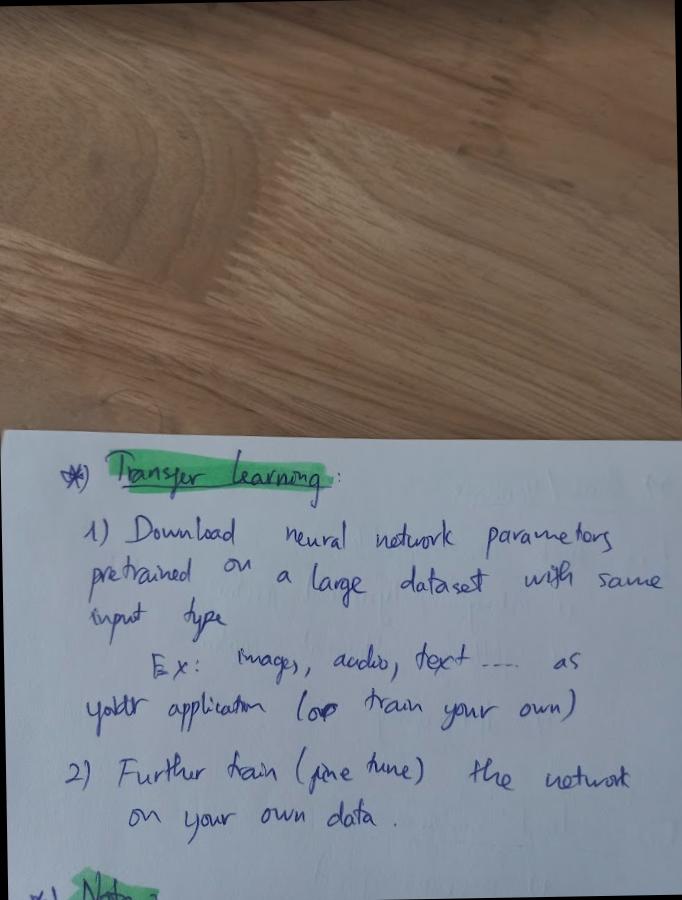 *) Transfer learning:
1) Download neural network parameters
pretrained on a large dataset with same
input type
Ex: images, audio, text .... as
your application (or train your own)
2) Further train (fine tune) the network
on your own data.
*) Note: